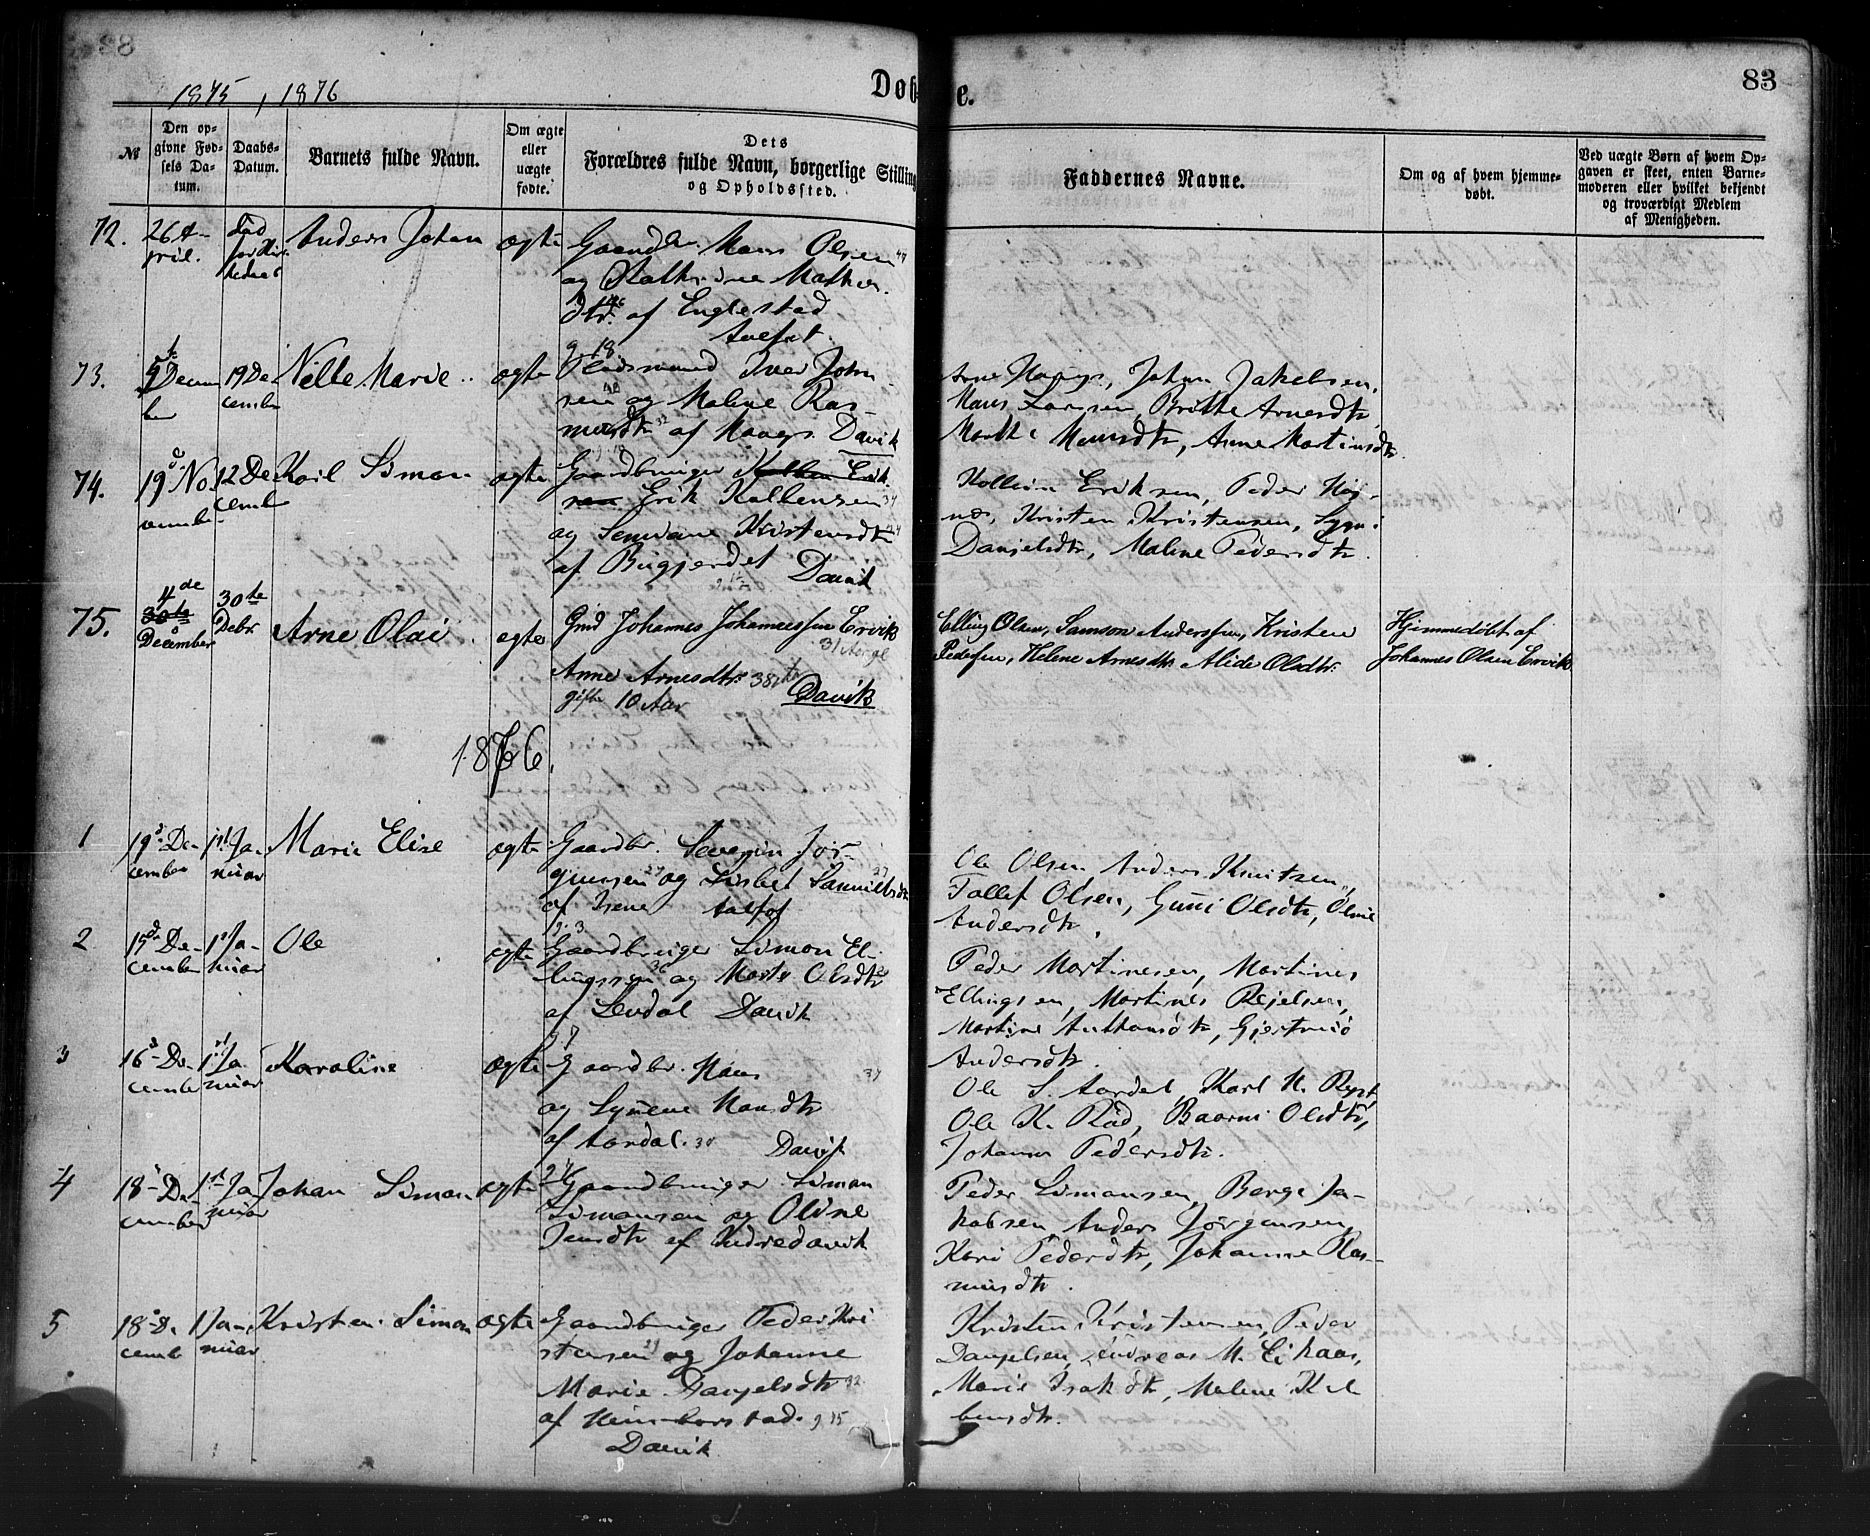 1875, 1876
Døb
e.
83
№
Den op-
givne Fød-
sels Da-
tum.
Daabs-
Datum.
Barnets fulde Navn.
Om ægte
eller
uægte
fødte.
Dets
Forældres fulde Navn, borgerlige Stilling
og Opholdssted.
Faddernes Navne.
Om og af hvem hjemme-
døbt.
Ved uægte Børn af hvem Op-
gaven er skeet, enten Barne-
moderen eller hvilket bekjendt
og troværdigt Medlem
af Menigheden.
72.
26 A-
pril.
Anders Johan
ægte
Gaardbr. Hans Olsen
og Kathrine Mathias
dtr. af Englestad
73.
9 Decem
be
19 De
cember
Nille Marie
ægte
Pladsmand Iver John
sen og Malene Ras-
musdtr af Haugs. Davik
Arne Haugs, Johan Jakobsen,
Hans Larsen, Britte Arnesdtr
Marthe Hansdtr, Anne Martinsdtr.
74.
19 No
vembe
12 De
cemb
Karl Simon
ægte
Gaardbruger
Erik Kolbensen 34
og Kristensdtr
af Davik
Eriksen, Peder
Kristen Kristensen,
Danielsdtr, Malene Pedersdtr.
75.
4de
30te
December
30te
Debr
Arne Olai.
ægte
Gmd Johannes Johannessen Ervik
31 Aar gl
Anne Arnesdtr. 38
gifte 10 Aar
Davik
Elling Olsen, Samson Anderssen, Kristen
Pedersen, Helene Arnesdtr. Alide Olsdtr.
Hjemmedøbt af
Johannes Olsen Ervik
1876.
1
19 De-
cember
1 Ja-
nuar
Marie Elise
ægte
Gaardbr. Severin Jør-
gensen og Lisbet Samuelsdtr
af Isene Aalfot
Ole Olsen Anders Knutsen,
Tollef Olsen, Guri Olsdtr,
Andersdtr.
2
15 De-
cember
1 Ja-
nuar
Ole
ægte
Gaardbruger Simon El-
lingssen og Marte Olsdtr
af Davik
Peder Martinesen, Martines
Ellingsen, Martines
Martine Anthonsdtr, Gjertrud
Andersdtr.
3
16 De-
cember
1 Ja
nuar
Karoline
ægte
Gaardbr. Hans
og Hansdtr
af Aardal. Davik
Ole S. Aardal, Karl H.
Ole K. Olsdtr,
Johanne Pedersdtr.
4
18 De-
cember
1 Ja
nuar
Johan Simon
ægte
Gaardbruger Simon
Simonsen og Oline
Jensdtr af Indredavik
Peder Simonsen, Berge Ja-
kobsen, Anders Jørgensen,
Kari Pedersdtr, Johanne Ras-
musdtr.
5
18 De
cemb
1 Ja-
nuar
Kristen Simon
ægte
Gaardbruger Peder Kri
stensen og Johanne
Marie Danjelsdtr 32
af
Davik
Kristen Kristensen, Peder
Danjelsen, Andreas M. Eikaas,
Marie Isakdtr, Malene Kol
bensdtr.